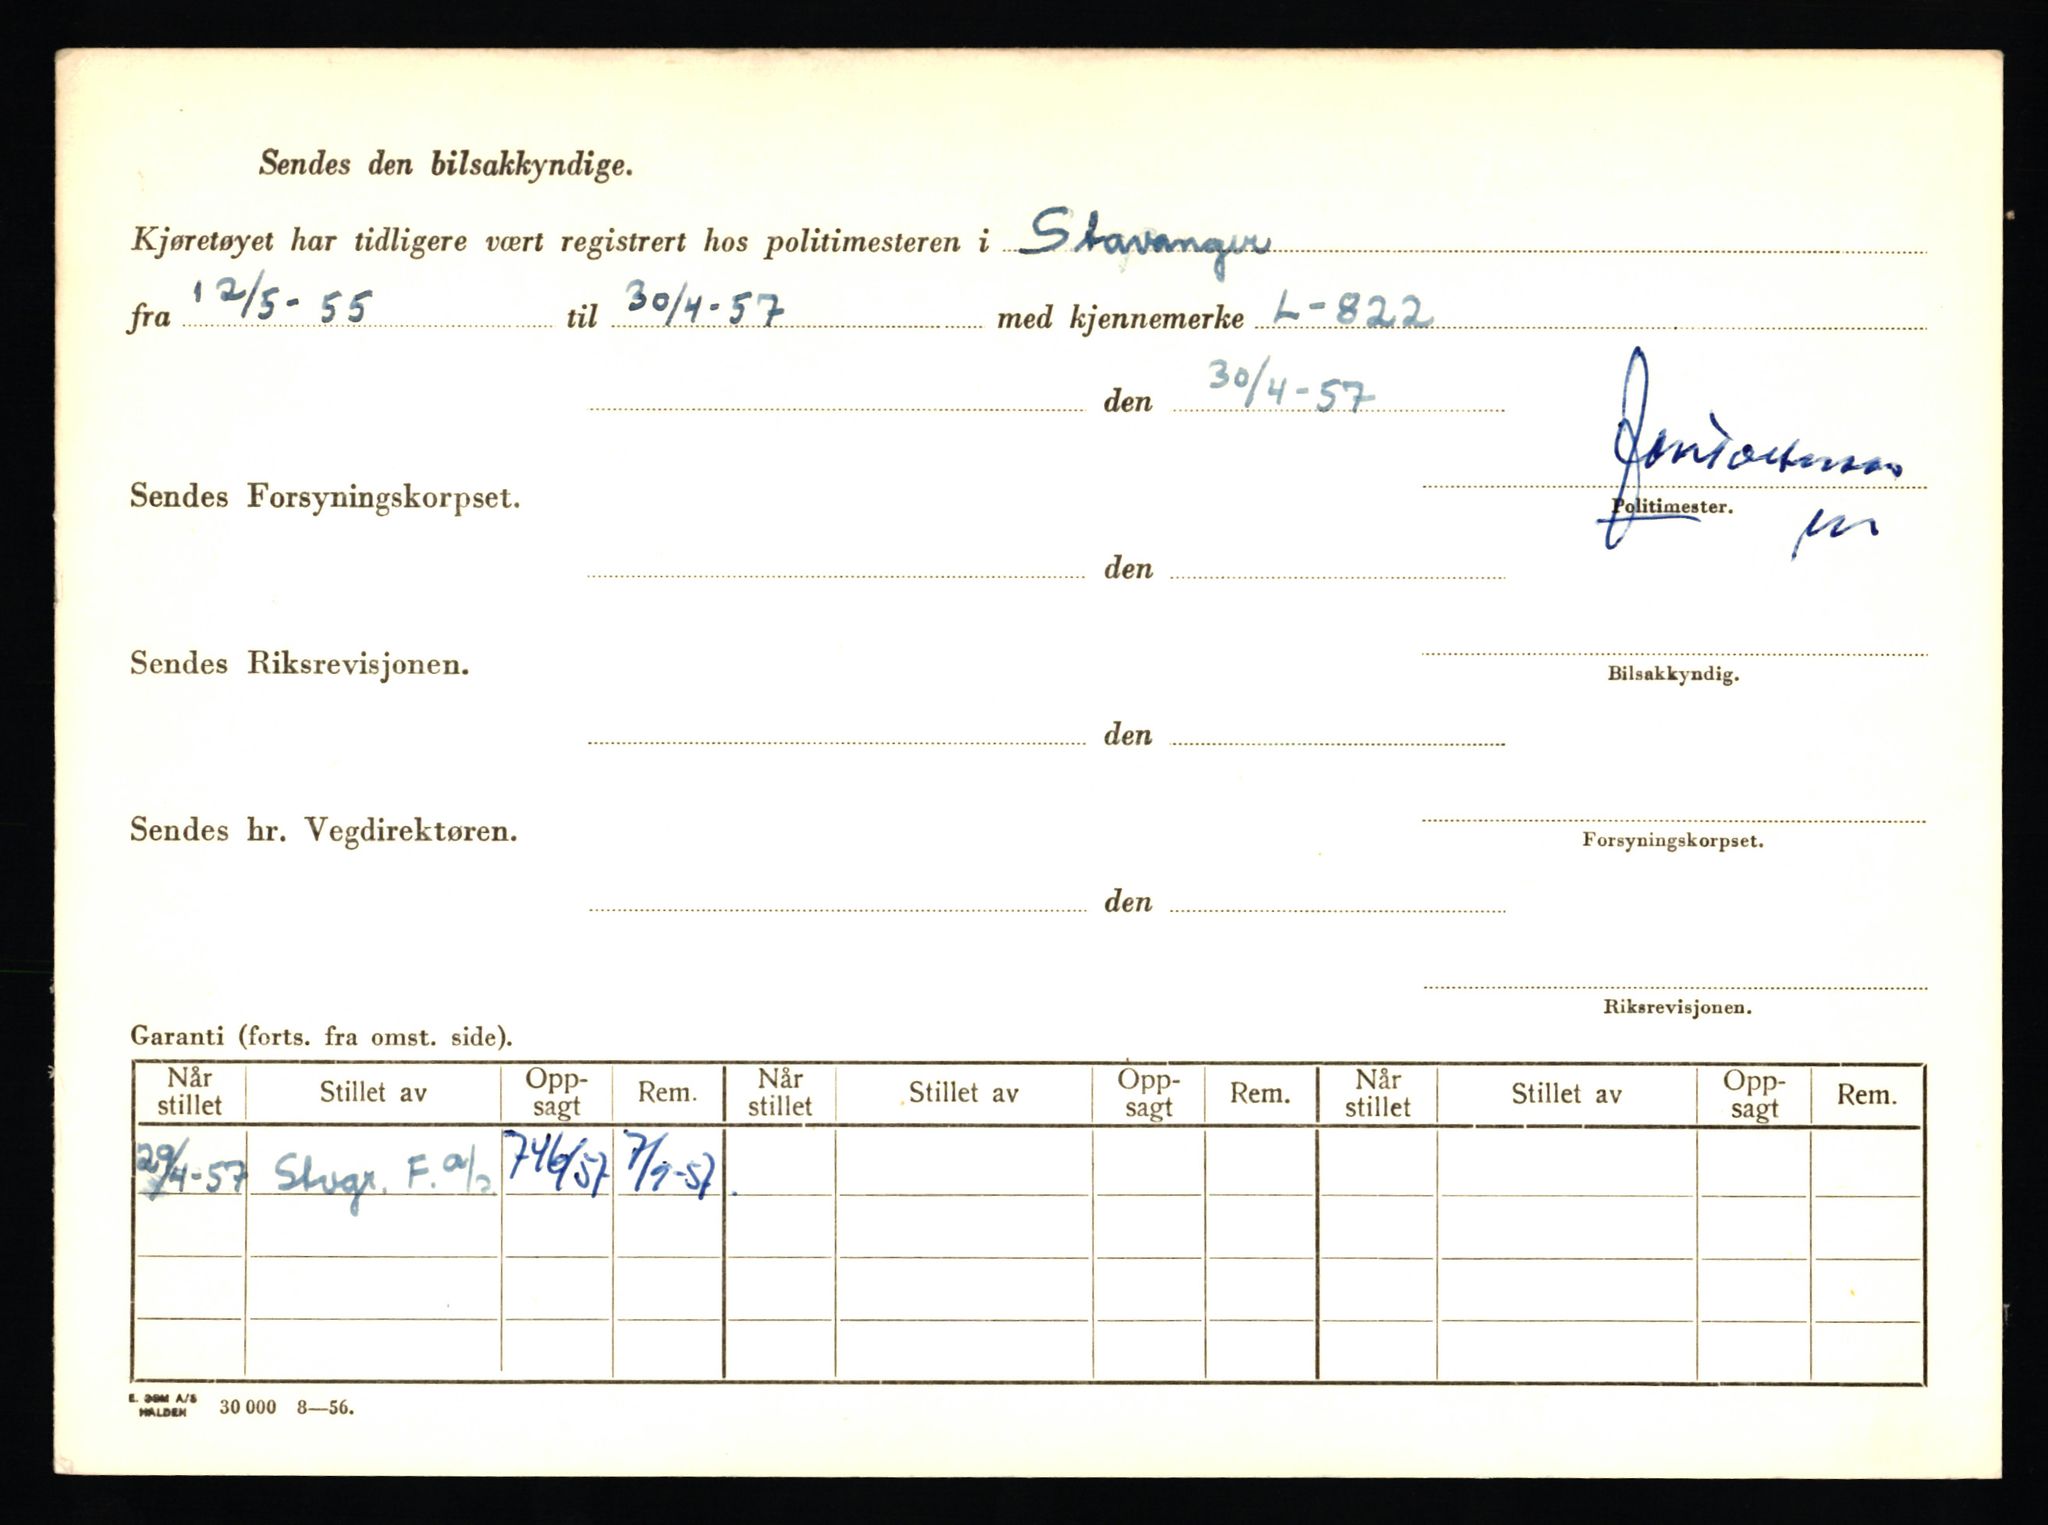 Sendes den bilsakkyndige.
Kjøretøyet har tidligere vært registrert hos politimesteren i Stavanger
fra 12/5-55 til 30/4-57 med kjennemerke L-822
den 30/4-57
Sendes Forsyningskorpset.
Politimester.
den
Sendes Riksrevisjonen.
Bilsakkyndig.
den
Sendes hr. Vegdirektøren.
Forsyningskorpset.
den
Riksrevisjonen.
Garanti (forts. fra omst. side).
Når stillet Stillet av Opp-sagt Rem. Når stillet Stillet av Opp-sagt Rem. Når stillet Stillet av Opp-sagt Rem.
29/4-57 Stvgr. F. a/s 7/9-57
E. SEM A/S
HALDEN 30 000 8—56.